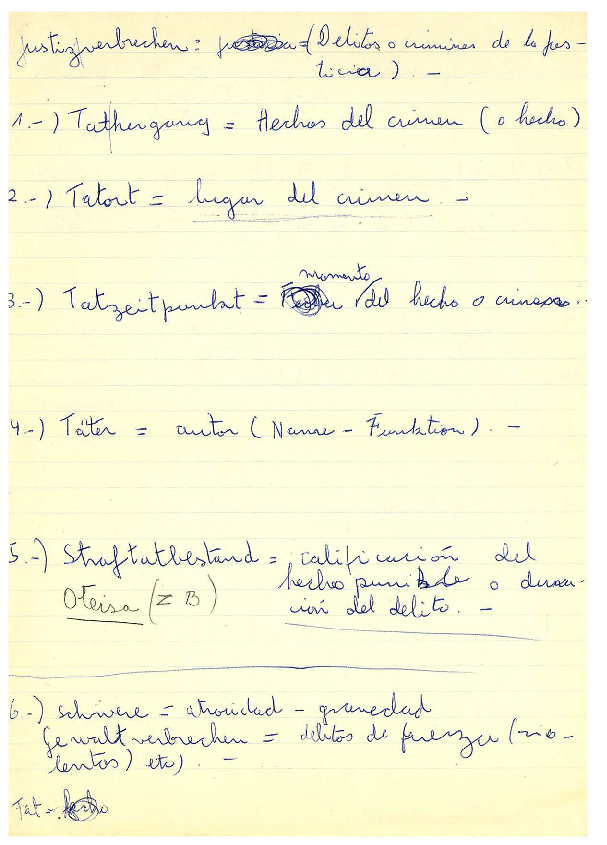 Justizverbrechen: = (Delitos o crimines de la jus-
ticia). -
1.-) Tathergang = Hechos del crimen (o hecho)
2.-) Tatort = lugar del crimen. -
momento
3.-) Tatzeitpunkt = del hecho o crimen..
4.-) Täter = autor (Name - Funktion). -
5.-) Straftatbestand = calificación del
hecho punible o
Oteisa (z B)
ción del delito. -
6.-) schwere = atrocidad - gravedad
Gewaltverbrechen = delitos de fuerza (vio-
lentos) etc). -
Tat = hecho